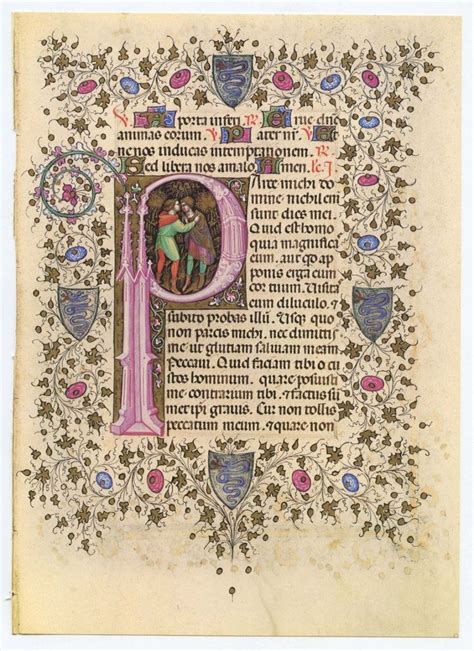 V A porta inferi R Erue dne
animas eorum. V Pater nr. V Et
ne nos inducas intemptationem. R
Sed libera nos amalo Amen. lc. J.
Parce michi do
mine nichil eni
sunt dies mei.
Quid est homo
quia magnificas
eum. aut qr ap
ponis erga eum
cor tuum. Visitas
eum diluculo. &
subito probas illu. Usq quo
non parcis michi, nec dimittis
me ut glutiam saliuam meam.
Peccaui. Quid faciam tibi o cu
stos hominum. quare posuisti
me contrarium tibi. & factus su
mi ipi grauis. Cur non tollis
peccatum meum. & quare non